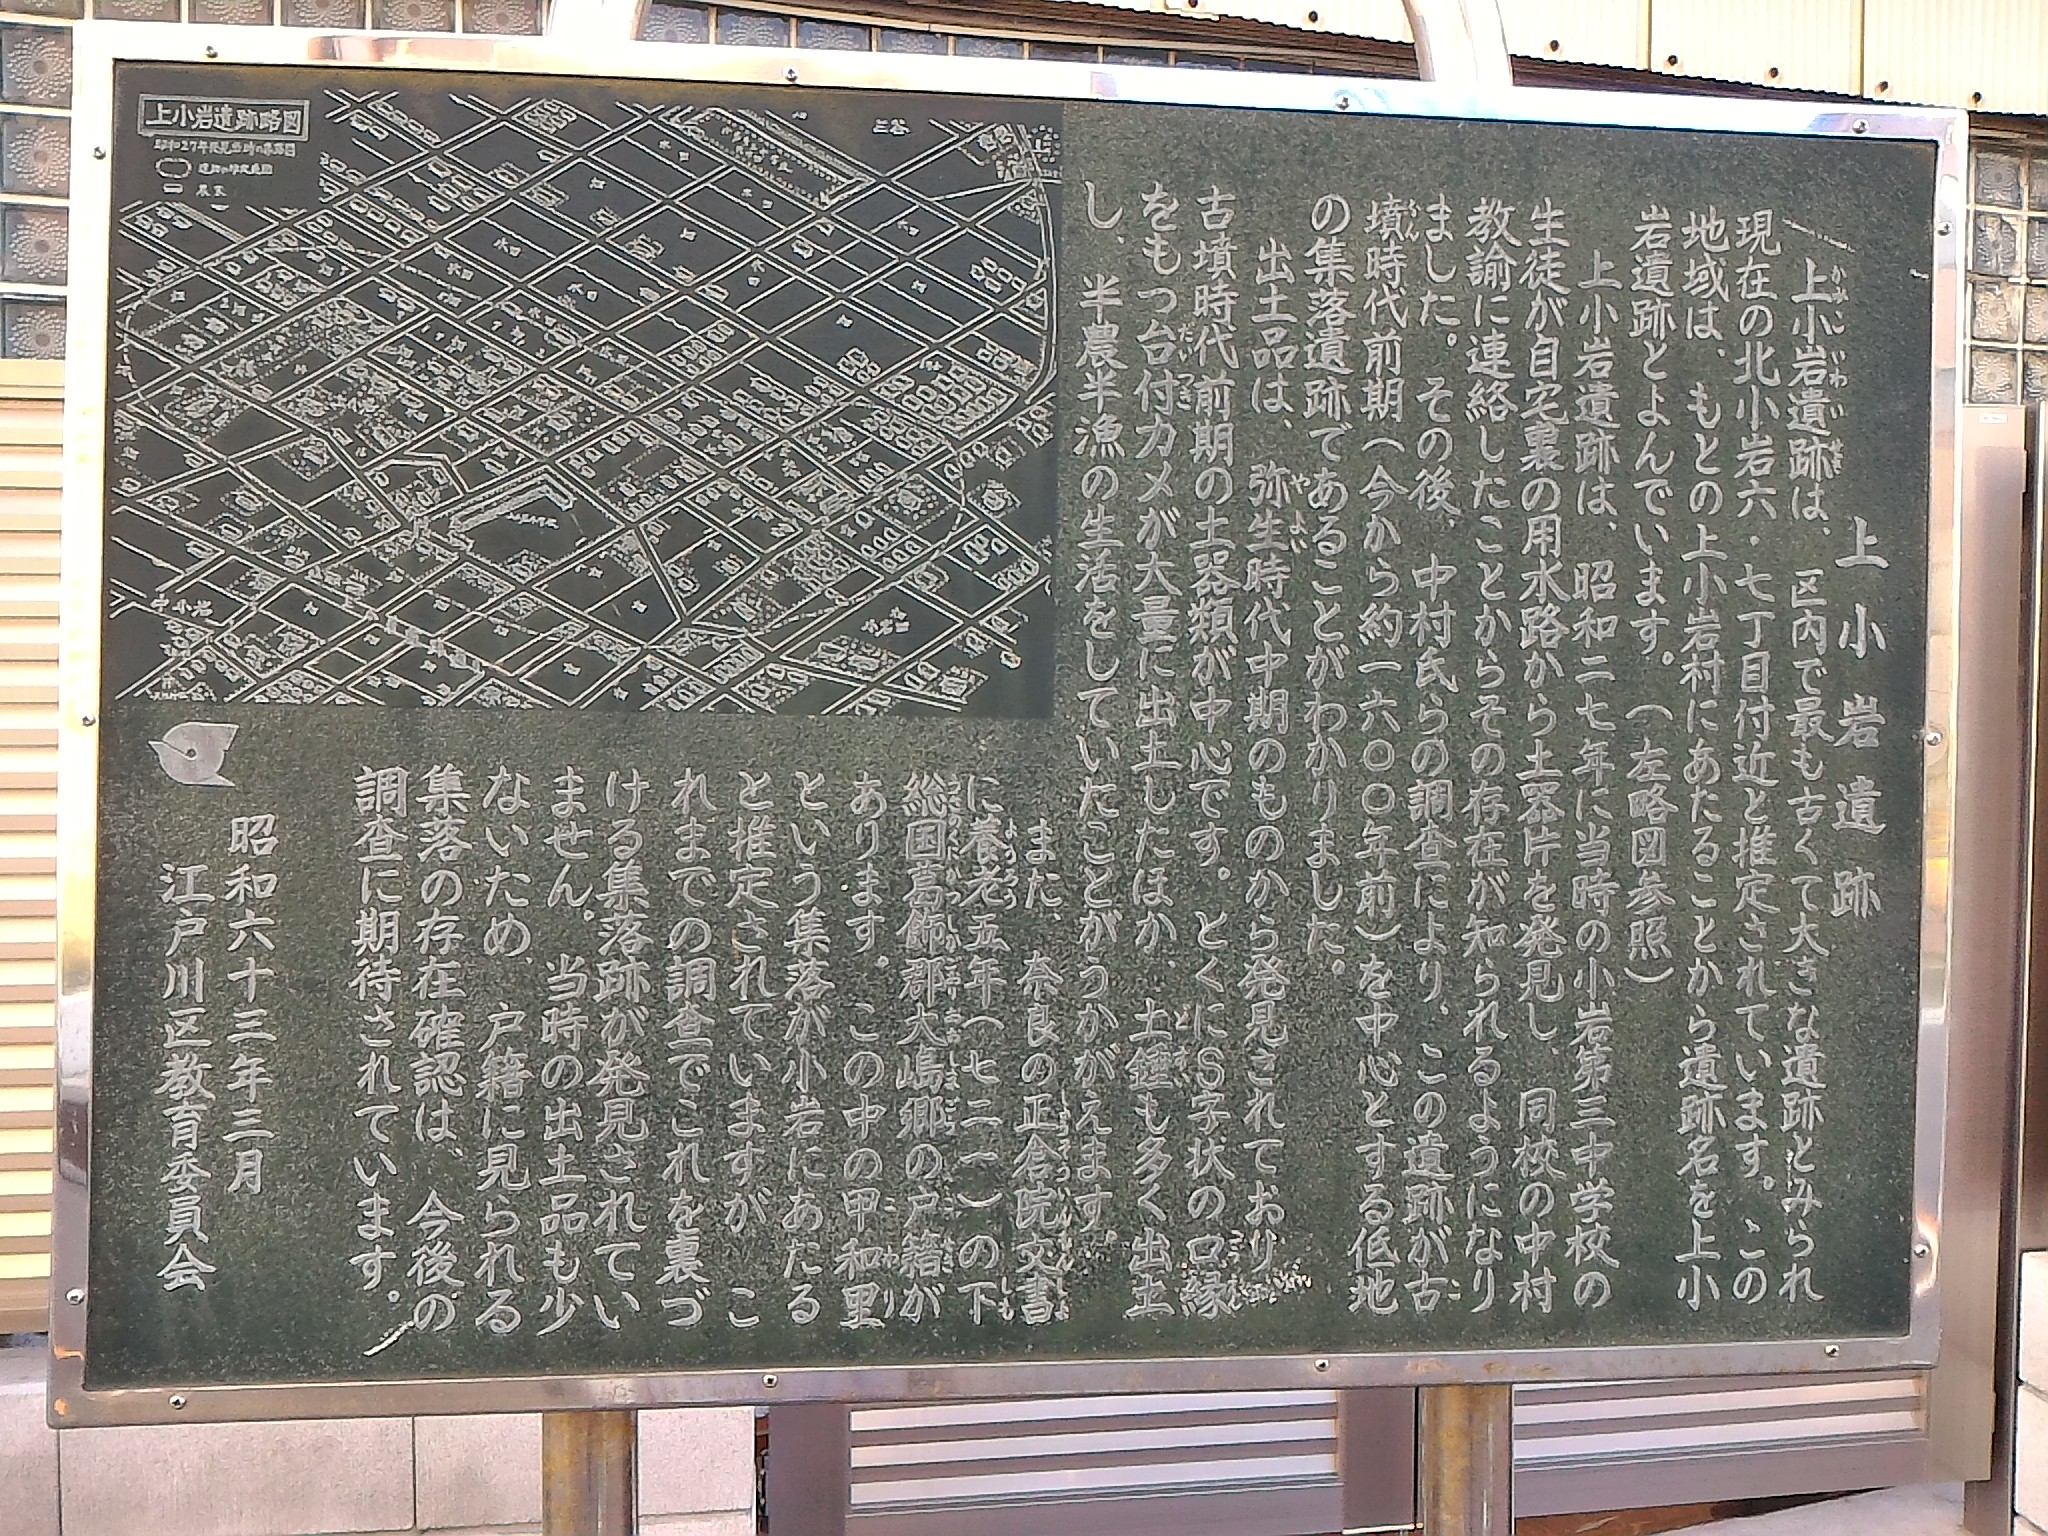 上小岩遺跡
上小岩遺跡は、区内で最も古くて大きな遺跡とみられ
現在の北小岩六・七丁目付近と推定されています。この
地域は、もとの上小岩村にあたることから遺跡名を上小
岩遺跡とよんでいます。(左略図参照)
上小岩遺跡は、昭和二七年に当時の小岩第三中学校の
生徒が自宅裏の用水路から土器片を発見し、同校の中村
教諭に連絡したことからその存在が知られるようになり
ました。その後、中村氏らの調査により、この遺跡が古
墳時代前期(今から約一六〇〇年前)を中心とする低地
の集落遺跡であることがわかりました。
出土品は、弥生時代中期のものから発見されており
古墳時代前期の土器類が中心です。とくにS字状の口縁
をもつ台付カメが大量に出土したほか、土錘も多く出土
し、半農半漁の生活をしていたことがうかがえます。
また、奈良の正倉院文書
に養老五年(七二一)の下
総国葛飾郡大島郷の戸籍が
あります。この中の甲和里
という集落が小岩にあたる
と推定されていますが、こ
れまでの調査でこれを裏づ
ける集落跡が発見されてい
ません。当時の出土品も少
ないため、戸籍に見られる
集落の存在確認は、今後の
調査に期待されています。
昭和六十三年三月
江戸川区教育委員会
上小岩遺跡略図
昭和27年発見当時の略図
農家